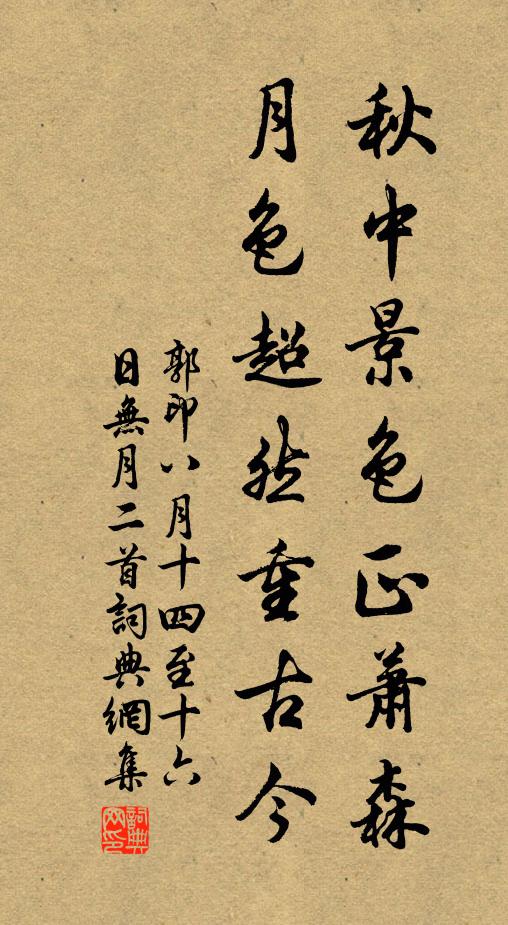 秋中景色正蕭森
月色超然重古今
郭印八月十四至十六
日無月二首詞典網集
詞典網印